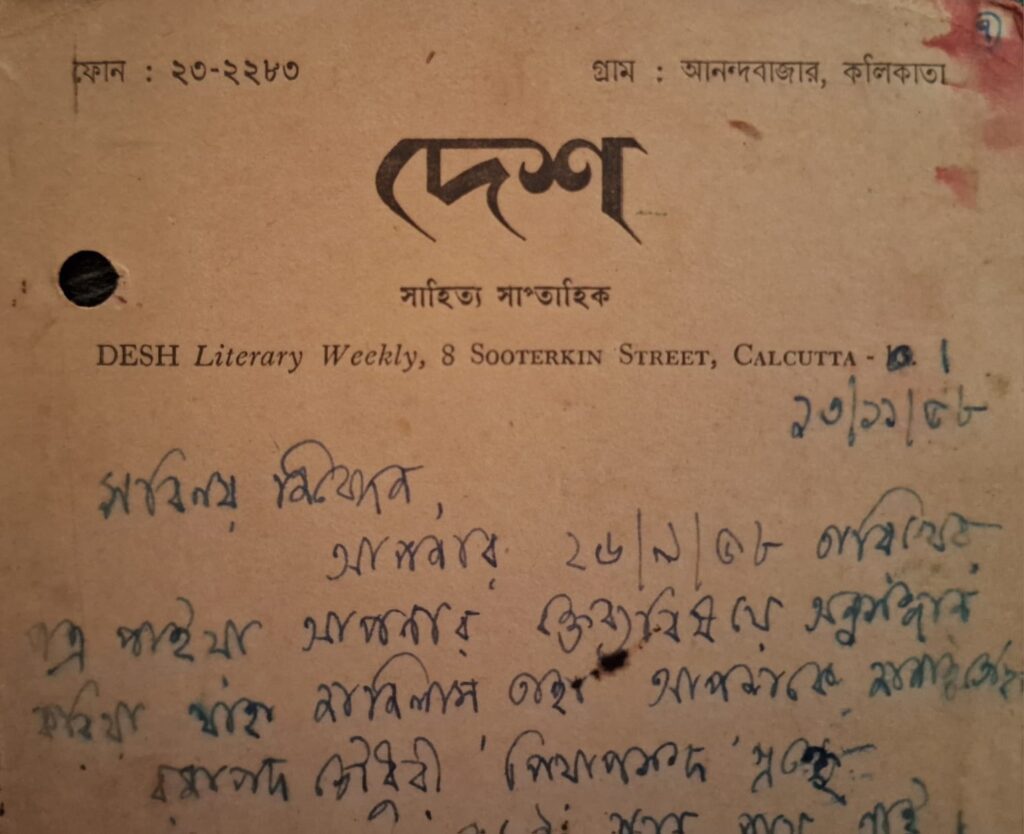 ৭
ফোন : ২৩-২২৮৩
গ্রাম : আনন্দবাজার, কলিকাতা
দেশ
সাহিত্য সাপ্তাহিক
DESH Literary Weekly, 8 SOOTERKIN STREET, CALCUTTA - 1
২৩/১১/৫৮
সবিনয় নিবেদন,
আপনার ২৬/৯/৫৮ তারিখের
পত্র পাইয়া আপনার বক্তব্যবিষয়ে অনুসন্ধান
করিয়া যাহা জানিলাম তাহা আপনাকে জানাইতেছি
রমাপদ চৌধুরী 'পিয়াপসন্দ' গ্রন্থে
পাই